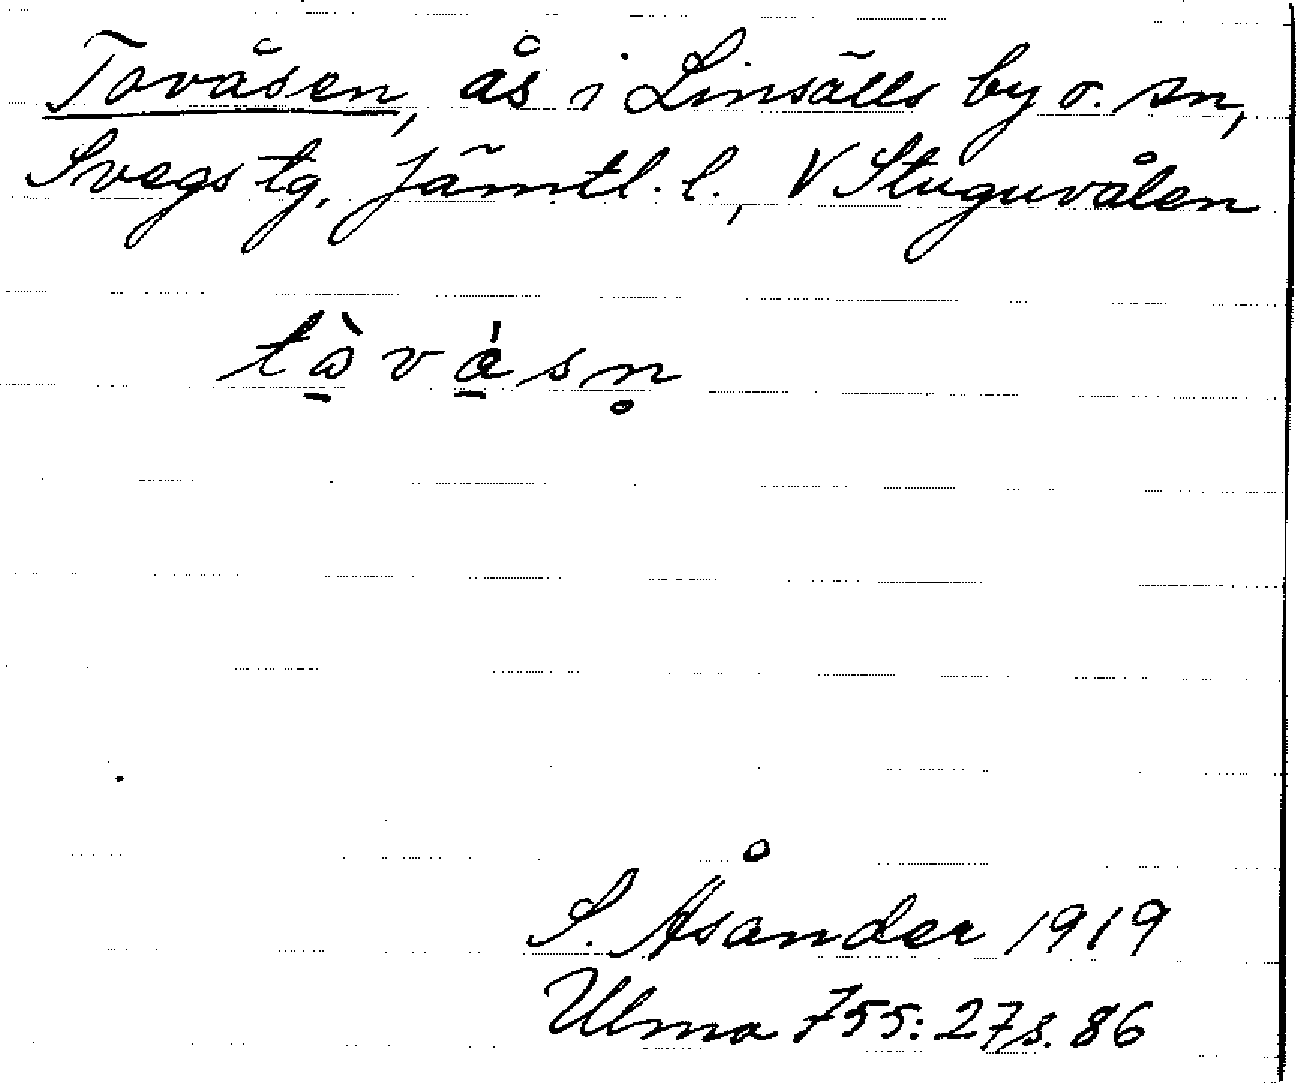 Tovåsen, ås i Linsälls by o. sn,
Svegs tg, Jämtl. l., V Stuguvålen
tå̱̀vǻ̱sn̥
S. Åsander 1919
Ulma 755:27 s. 86